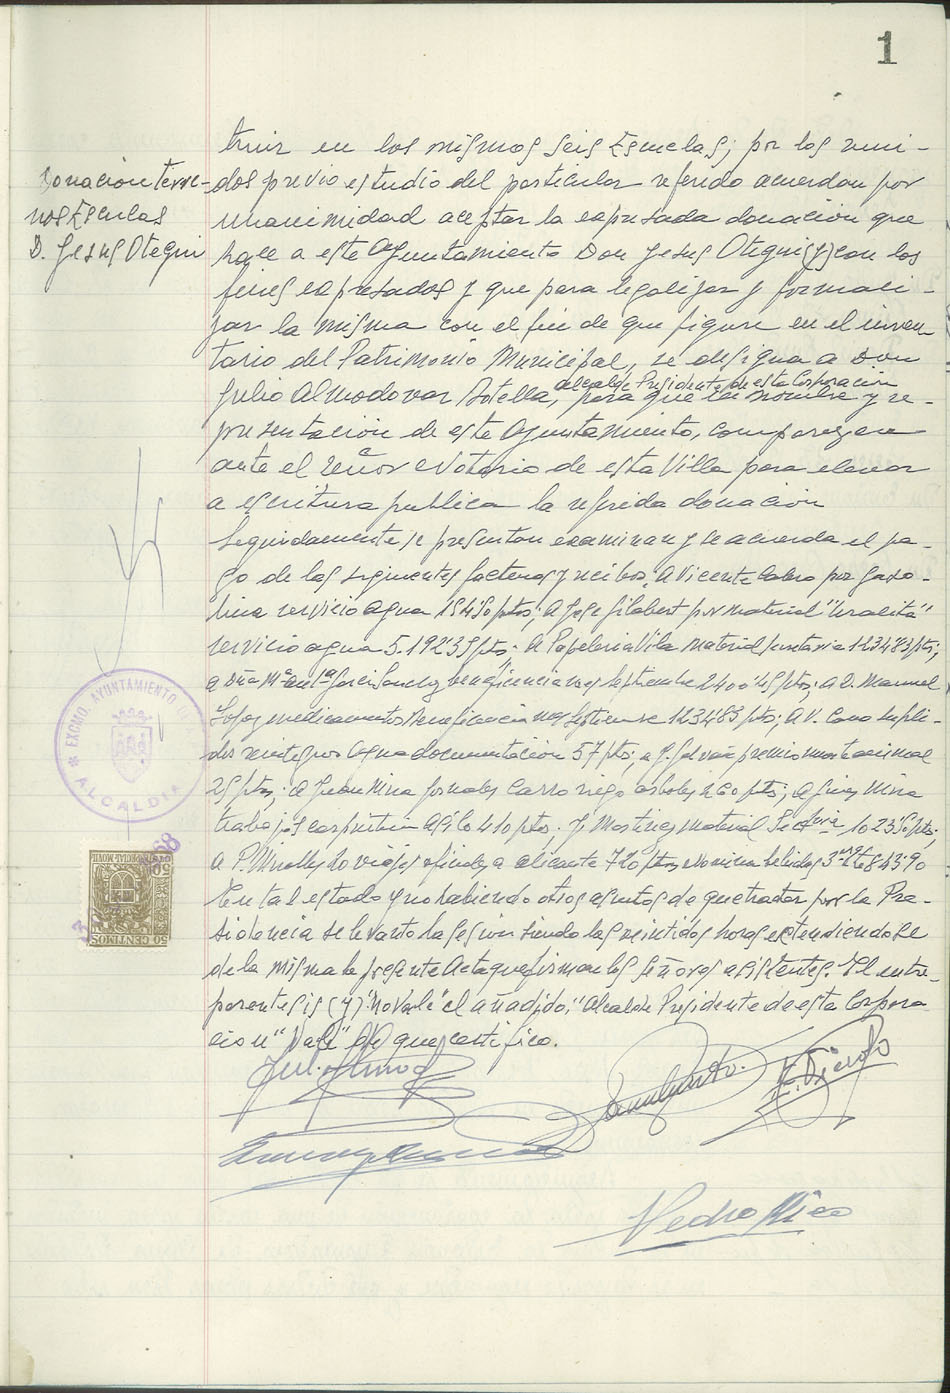 1
Donación terre-
nos Esculas
D. Jesus Otegui
truir en los mismos seis Escuelas; por los reuni-
dos previo estudio del particular referido acuerdan por
unanimidad aceptar la expresada donación que
hace a este Ayuntamiento Don Jesus Otegui (y) con los
fines expresados y que para legalizar y formali-
zar la misma con el fin de que figure en el inven-
tario del Patrimonio Municipal, se designa a Don
alcalde Presidente de esta Corporación
Julio Almodovar Sotella, para que en nombre y re-
presentación de este Ayuntamiento, comparezca
ante el señor Notario de esta Villa para elevar
a escritura publica la referida donación
Seguidamente se presentan examinan y se acuerda el pa-
go de las siguientes facturas y recibos, A Vicente por gaso-
lina servicio agua ptas; a Jose Gilabert por material "Uralita"
servicio agua 5.192'35 pts. A Papeleria Vila material 1234'83 pts;
a Dña Mª beneficencia mes Septiembre ptas; a D. Manuel
medicamentos Beneficencia mes 1234'83 pts; A V. Cano supli-
dos reintegros documentación 57 pts; a J. premio
25 ptas; a Juan Mira Jornales Carro riego arboles pts; a Mira
trabajos carpinteria Asilo 410 pts. Martinez material
a P. viajes a alicante 720 ptas
En tal estado y no habiendo otros asuntos de que tratar por la Pre-
sidencia se levanto la sesion siendo las veintidos horas extendiendose
de la misma la presente Acta que firman los señores asistentes. El entre
parentesis (y) "No Vale" el añadido, "alcalde Presidente de esta Corpora
cion" "Vale" de que certifico.
Pedro Rico
EXCMO. AYUNTAMIENTO
ALCALDIA
ESPECIAL MOVIL
50 CENTIMOS